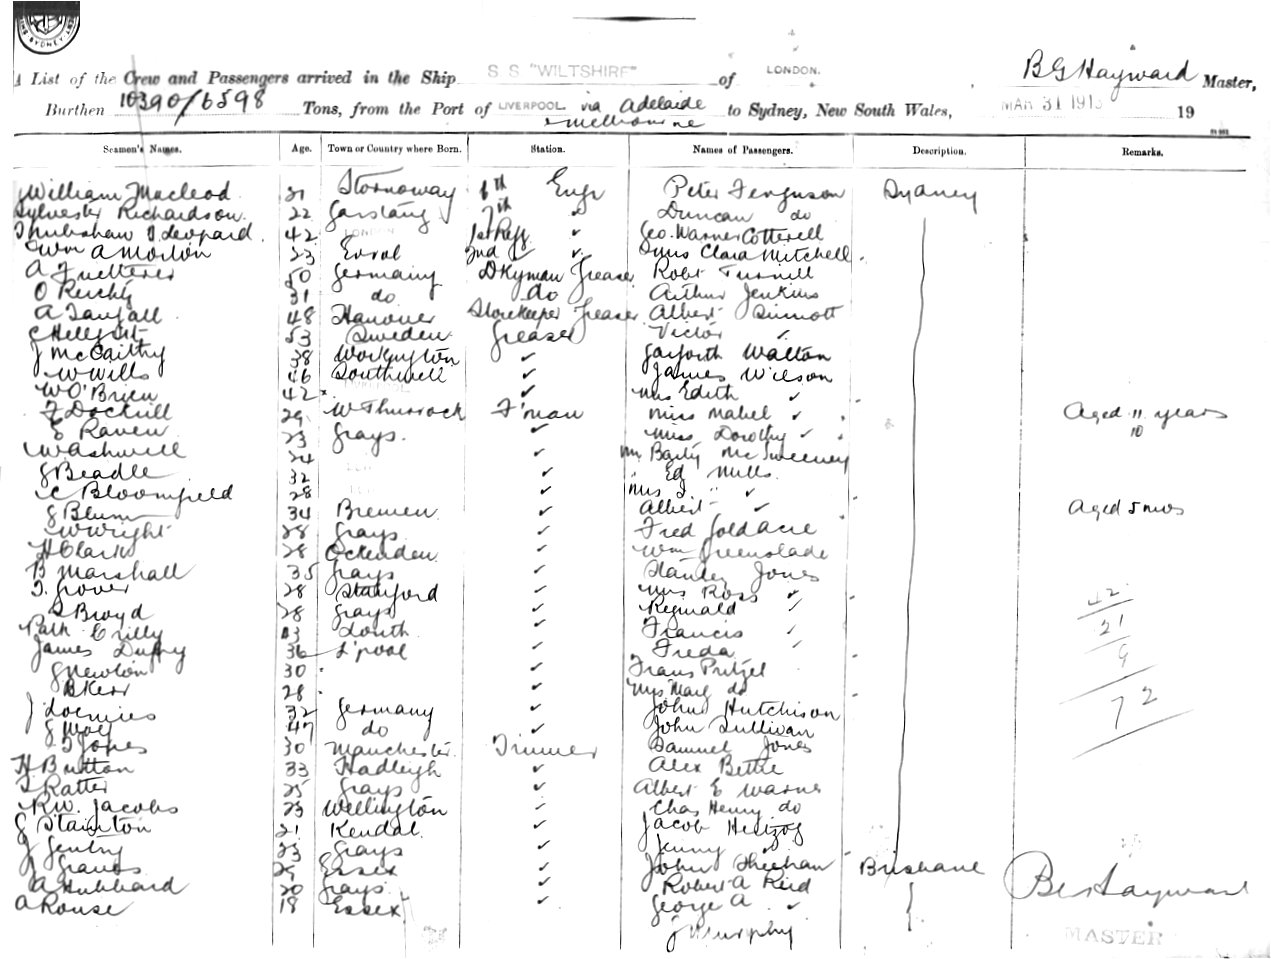 S S "WILTSHIRE" LONDON.
A List of the Crew and Passengers arrived in the Ship of B G Hayward Master,
Burthen 10390/6598 Tons, from the Port of LIVERPOOL via Adelaide & Melbourne to Sydney, New South Wales, MAR 31 191 19
Seamen's Names. Age. Town or Country where Born. Station. Names of Passengers. Description. Remarks.
William Macleod 21 Stornoway 6th Engr Peter Ferguson Sydney
Sylvester Richardson 22 Garstang 7th ✓ Duncan do
Leopard 42 LONDON 1st Refr ✓ Geo. Warner Cotterell
Wm A Morton 23 Errol 2nd ✓ Miss Clara Mitchell
A 50 Germany Dkyman Greaser Robt Turnill
O Reichly 31 do do Arthur Jenkins
A 48 Hanover Storekeeper Greaser Albert Sinnott
C 53 Sweden Greaser Victor ✓
J McCarthy 38 Workington ✓ Garforth Walton
W Wills 46 Southwell ✓ James Wilson
W O'Brien 42 ✓ Mrs Edith ✓
F Dockrill 29 W Thurrock F'man Miss Mabel ✓ Aged 11 years
E Raven 23 Grays. ✓ Miss Dorothy ✓ 10
W Ashwell 24 ✓ Mr McSweeney
G Beadle 32 ✓ Ed Mills
C Bloomfield 28 ✓ Mrs " ✓
G Blum 34 Bremen ✓ Albert ✓ Aged 5 mos
W Wright 28 Grays ✓ Fred Goldacre
H Clark 28 Ockenden ✓ Wm Greenslade
B Marshall 35 Grays ✓ Stanley Jones
T. Grover 28 Stanford ✓ Mrs Ross ✓ 42
S Broyd 28 Grays ✓ Reginald ✓
Patk Crilly 23 Louth ✓ Francis ✓ 21
James Duffy 36 L'pool ✓ Freda ✓ 9
G Newton 30 ✓ Frans Pritzel
B Kerr 28 ✓ Mrs Marg do 72
J 32 Germany ✓ John Hutchison
G Wolf 47 do ✓ John Sullivan
T Jones 30 Manchester Trimmer Samuel Jones
H Button 33 Hadleigh ✓ Alex Bettie
Ratter 25 Grays ✓ Albert E Warner
R W. Jacobs 23 Wellington ✓ Chas Henry do
G Stainton 21 Kendal ✓ Jacob Hertzog
J Gentry 23 Grays ✓ Jenny ✓
J Graves 29 Essex ✓ John Sheehan Brisbane
A Hubbard 20 Grays ✓ Robert A Reid B G Hayward
A Rouse 18 Essex ✓ George A ✓
J Murphy MASTER